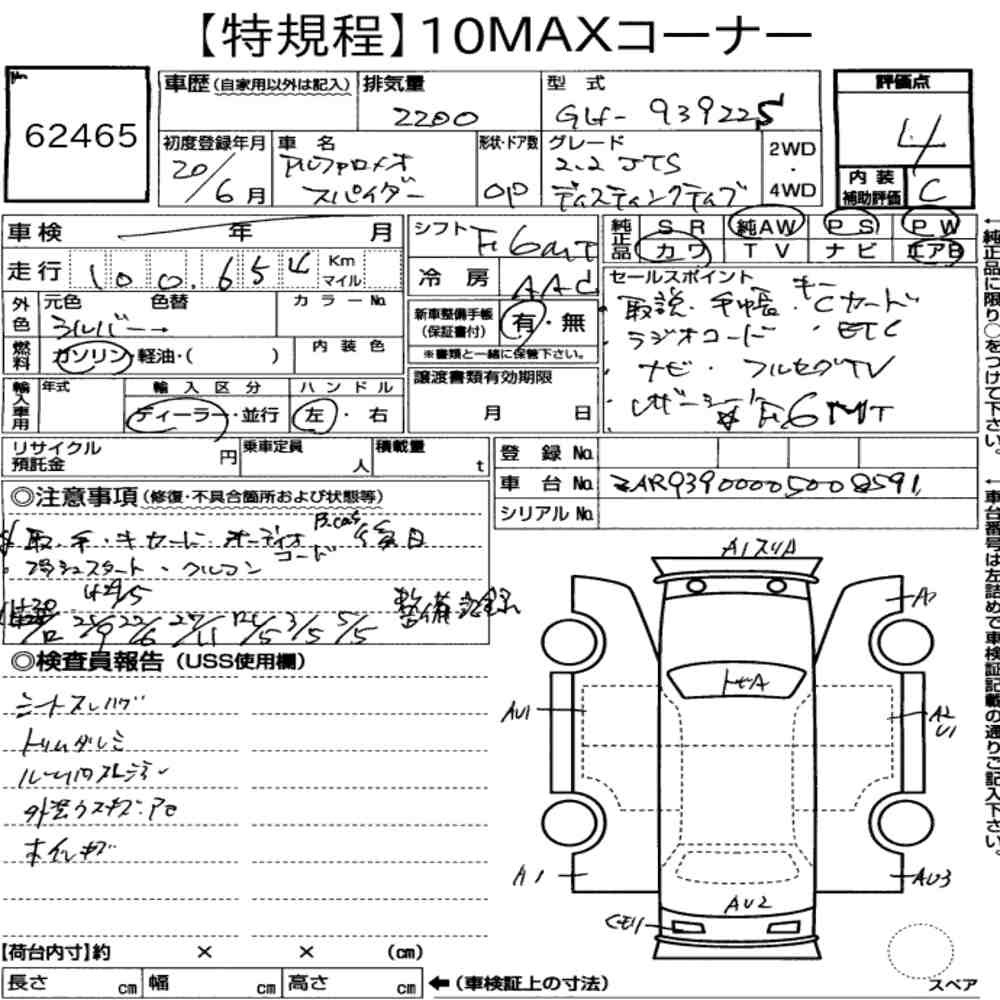 【特規程】10MAXコーナー
62465
車歴(自家用以外は記入)
排気量
2200
型式
GH-93922S
評価点
4
内装補助評価
C
初度登録年月
20/6月
車名
アルファロメオ
スパイダー
形状・ドア数
OP
グレード
2.2 JTS
ディスティンクティブ
2WD
・
4WD
車検 年 月
シフト
F6MT
純正品
SR 純AW PS PW
カワ TV ナビ エアB
走行 100,654 Km マイル
冷房
AAC
外色
元色 色替
シルバー→
カラーNo.
新車整備手帳(保証書付)
有・無
※書類と一緒に保管下さい。
セールスポイント
・取説・手帳・キー・Cカード
・ラジオコード・ETC
・ナビ・フルセグTV
・レザーシート
☆F6MT
燃料
ガソリン・軽油・( )
内装色
譲渡書類有効期限
月 日
輸入車用
年式
輸入区分
ディーラー・並行
ハンドル
左・右
リサイクル預託金 円
乗車定員 人
積載量 t
登録No.
車台No.
ZAR93900005008591
シリアルNo.
◎注意事項(修復・不具合箇所および状態等)
取・手・キカード・オーディオコード B-cas 後日
・プッシュスタート・クルコン
H29/5
H20/12 25/9 22/6 27/11 R2/5 3/5 5/5 整備記録
◎検査員報告(USS使用欄)
シートスレハゲ
トリムダレミ
外装ウスキズ・アセ
ホイルキズ
A1スリA
AP
トビA
AU1
A2
U1
A1
AU3
AU2
【荷台内寸】約 × × (cm)
長さ cm 幅 cm 高さ cm
←(車検証上の寸法)
スペア
←純正品に限り○をつけて下さい。
←車台番号は左詰めで車検証記載の通りご記入下さい。